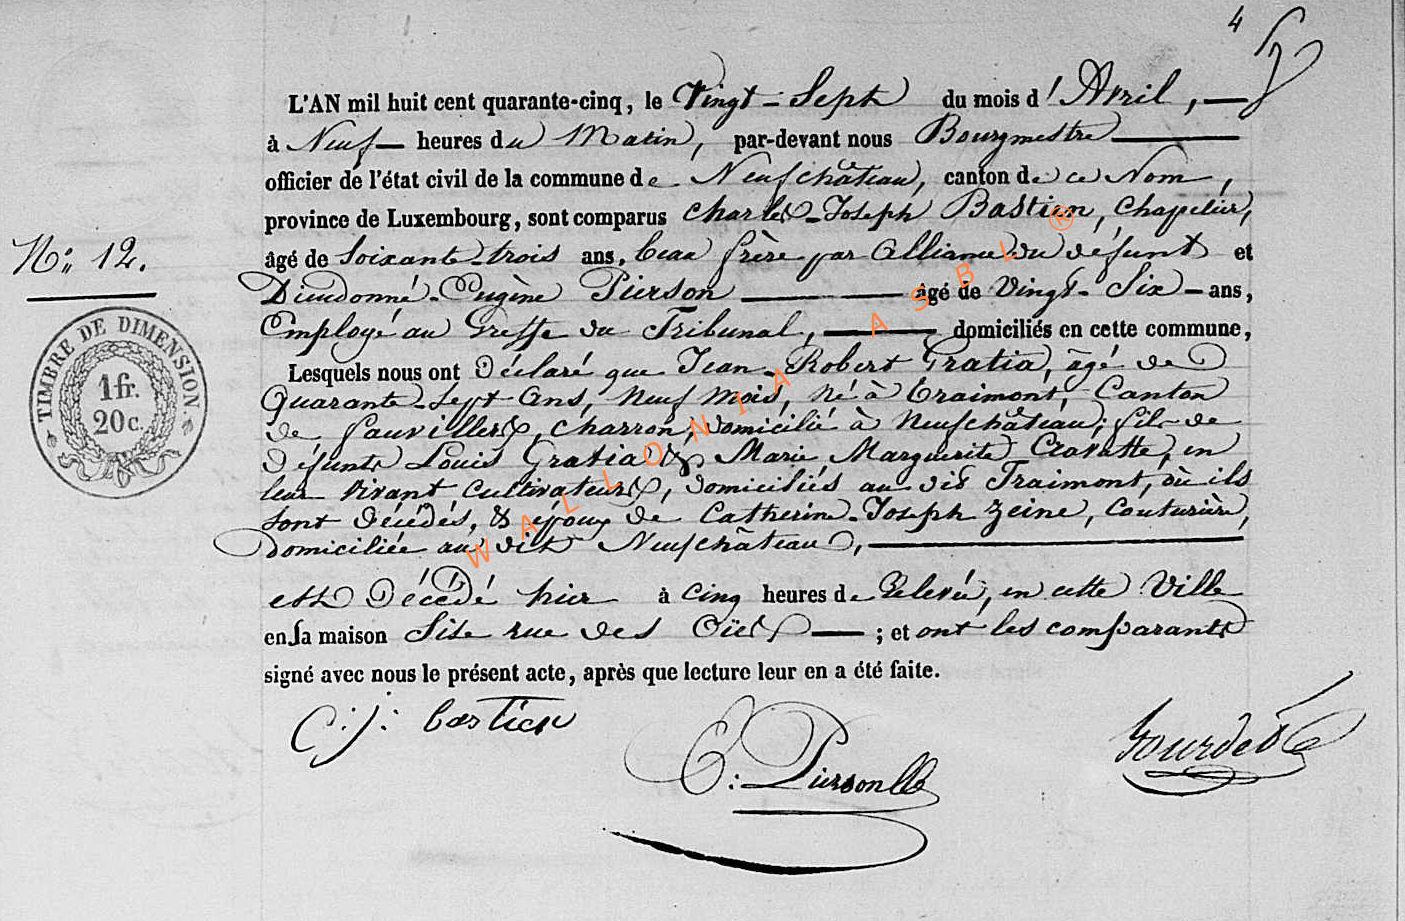 4
L'AN mil huit cent quarante-cinq, le Vingt-Sept du mois d'Avril,
à Neuf heures du Matin, par-devant nous Bourgmestre
officier de l'état civil de la commune de Neufchâteau, canton de ce Nom,
province de Luxembourg, sont comparus Charles-Joseph Bastien, Chapelier,
N° 12.
âgé de Soixante-trois ans, beau frère par alliance du défunt et
Dieudonné-Eugène Pierson âgé de Vingt-Six ans,
Employé au Greffe du Tribunal, domiciliés en cette commune,
Lesquels nous ont Déclaré que Jean-Robert Gratia, âgé de
Quarante-sept ans, Neuf mois, Né à Traimont, Canton
de fauvillers, charron, domicilié à Neufchâteau; fils de
défunts Louis Gratia & Marie Marguerite Cravatte, en
leur vivant cultivateurs, domiciliés au dit Traimont, où ils
sont décédés, & époux de Catherine-Joseph Zeine, couturière,
domiciliée au dit Neufchâteau,
est Décédé hier à cinq heures de Relevée, en cette Ville
en sa maison Sise rue des Oïes ; et ont les comparants
signé avec nous le présent acte, après que lecture leur en a été faite.
C: j: bastien
E: Pierson
Gourdet
TIMBRE DE DIMENSION.
1 fr.
20 c.
WALLONIA ASBL ®